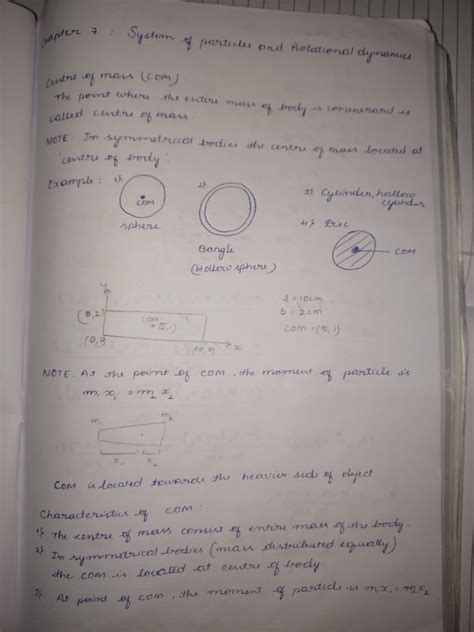 Chapter 7 : System of particles and Rotational dynamics
Centre of mass (COM)
The point where the entire mass of body is concenerard is
called centre of mass
NOTE: In symmetrical bodies the centre of mass located at
'centre of body'.
Example: 1)
COM
sphere
2)
Bangle
(Hollow sphere)
3) Cylinder, hollow
cylinder
4) Disc
COM
y
(0,2)
COM
=(5,1)
(0,0)
(10,0)
x
l=10cm
b=2cm
COM=(5,1)
NOTE: At the point of COM, the moment of particle is
m₁ x₁ = m₂ x₂
m₁
m₂
x₁
x₂
COM is located towards the heavier side of object
Characteristics of COM:
1) The centre of mass consist of entire mass of the body.
2) In symmetrical bodies (mass distributed equally)
the COM is located at centre of body
3) At point of COM, the moment of particle is mx₁=m₂x₂